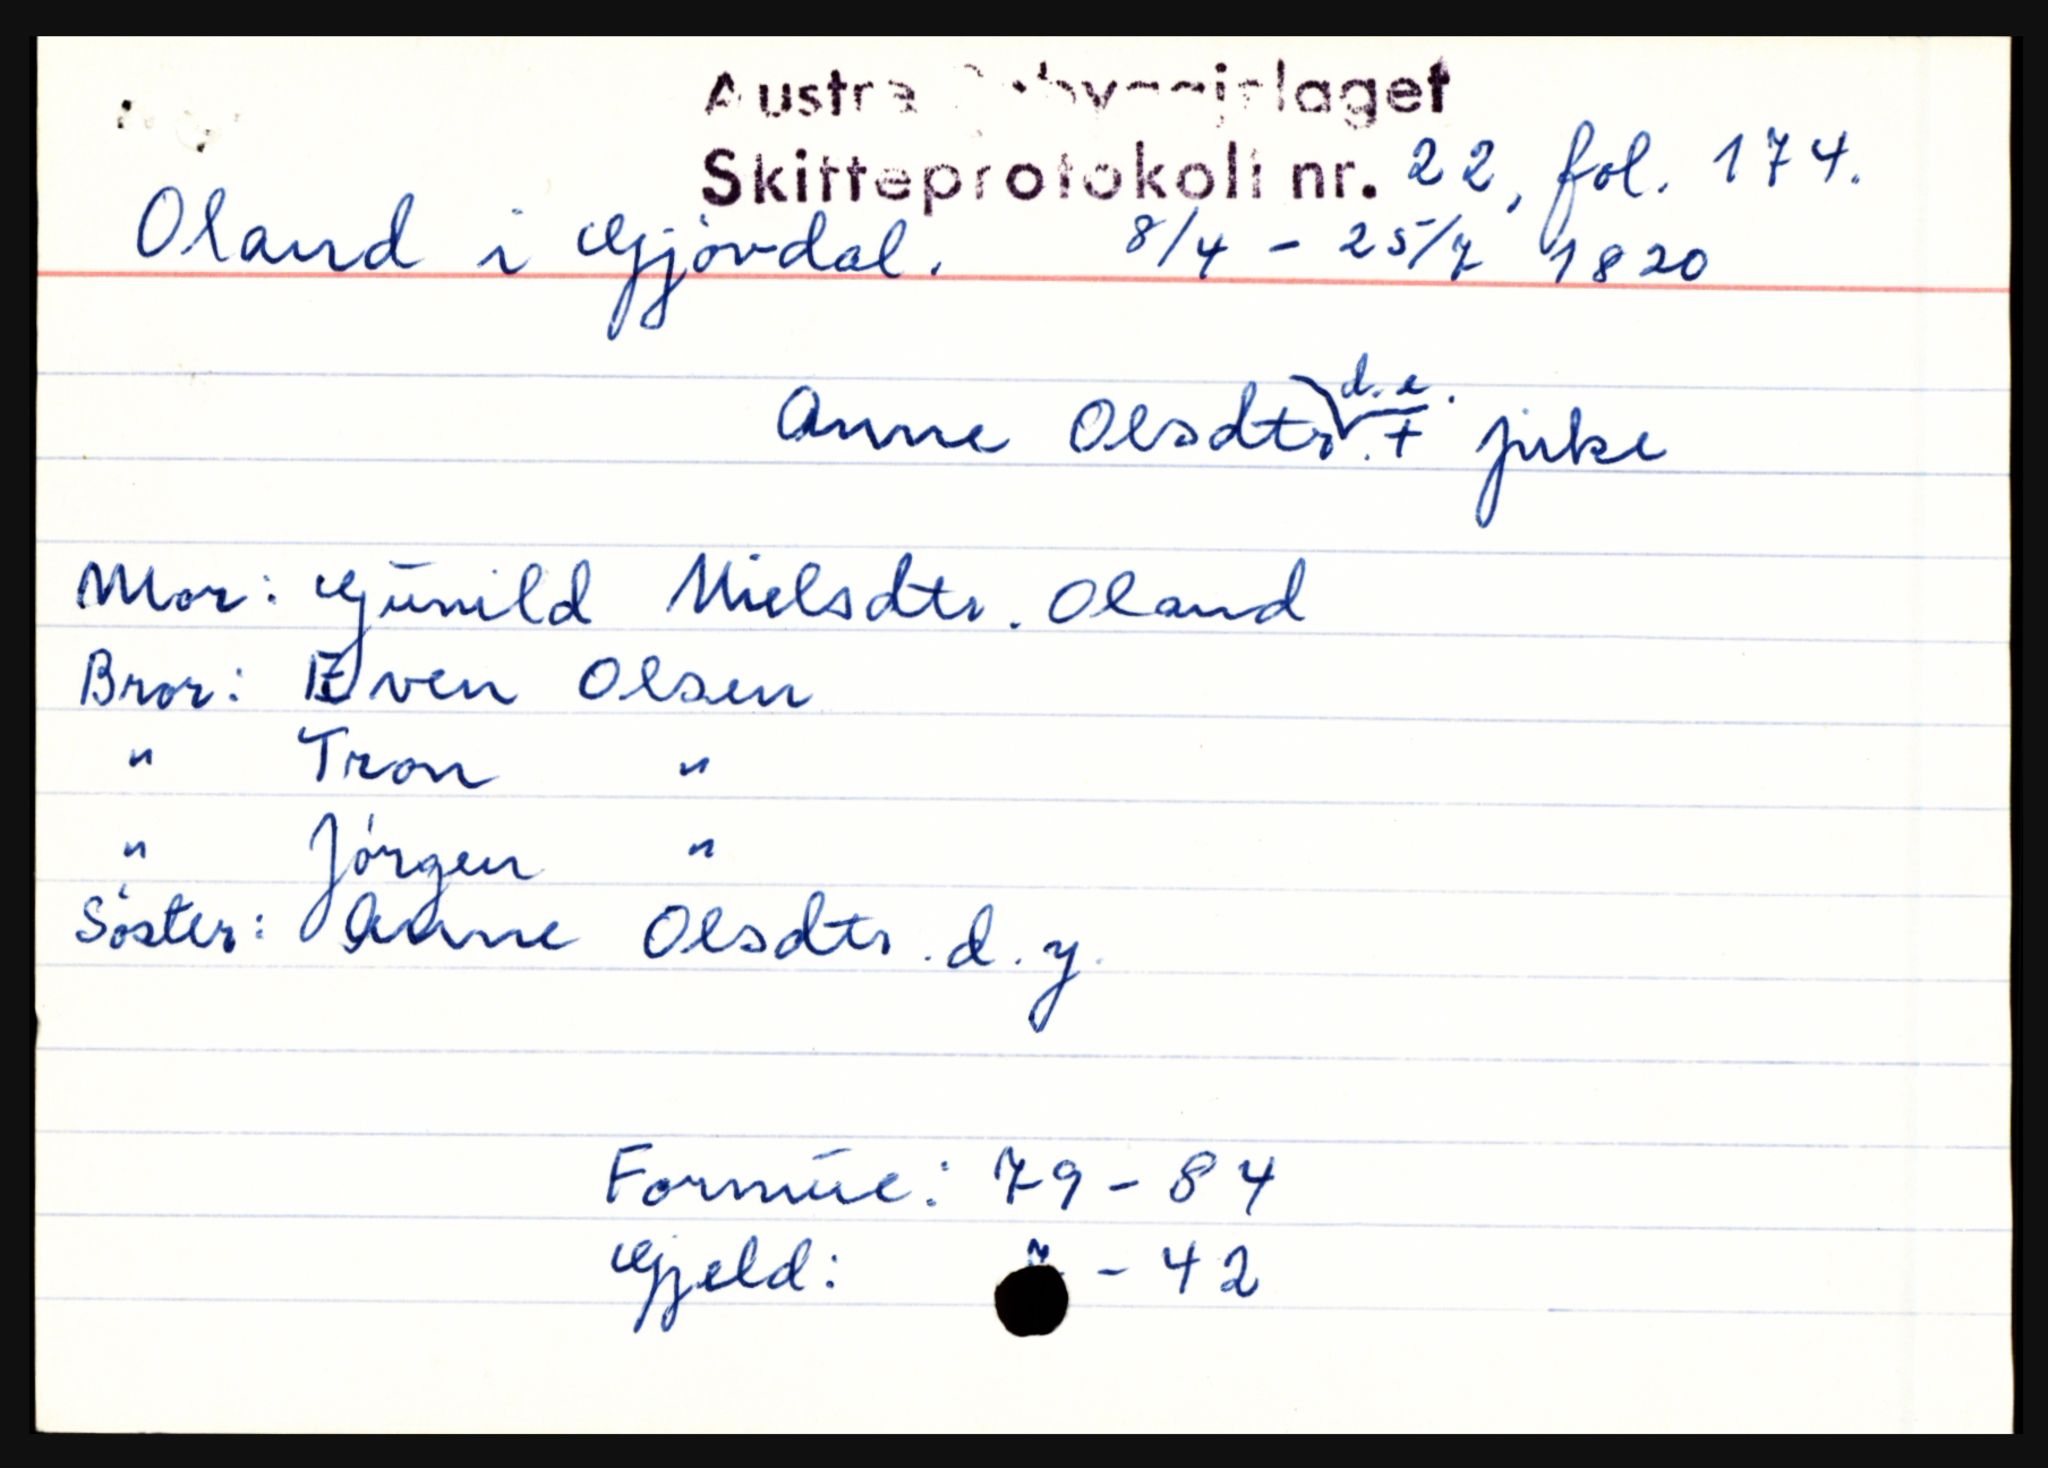 Austre
Skifteprotokoll nr. 22, fol. 174.
Oland i Gjövdal. 8/4 - 25/7 1820
Anne Olsdtr. d.e. + pike
Mor: Gunild Nielsdtr. Oland
Bror: Even Olsen
" Tron "
" Jörgen "
Söster: Anne Olsdtr. d.y.
Formue: 79 - 84
Gjeld: - 42